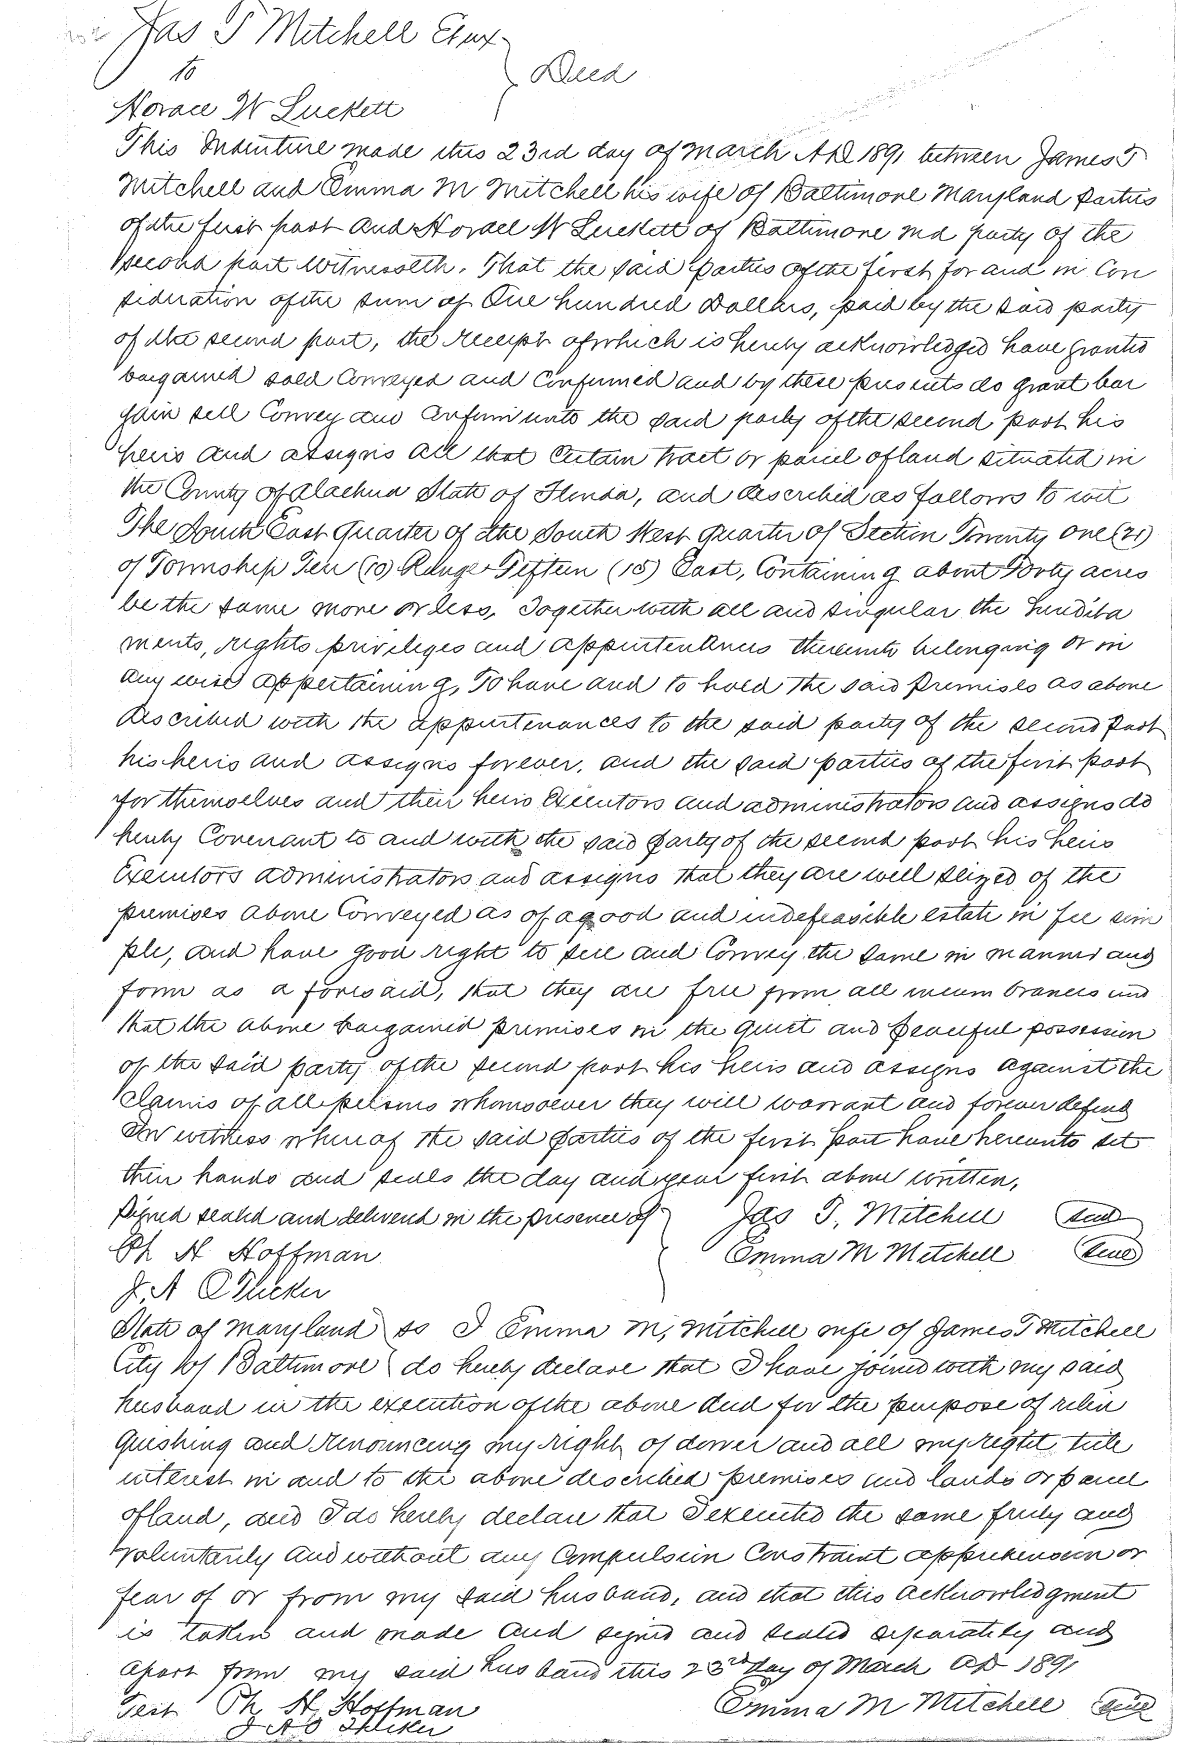 Jas T Mitchell Etux
to
Deed
Horace W Luckett
This Indenture made this 23rd day of March AD 1891 between James T
Mitchell and Emma M Mitchell his wife of Baltimore Maryland Parties
of the first part and Horace W Luckett of Baltimore Md party of the
second part Witnesseth. That the said parties of the first for and in Con
sideration of the sum of One hundred Dollars, paid by the said party
of the second part, the receipt of which is hereby acknowledged have granted
bargained sold Conveyed and Confirmed and by these presents do grant bar
gain sell Convey and Confirm unto the said party of the second part his
heirs and assigns all that Certain tract or parcel of land situated in
the County of Alachua State of Florida, and described as follows to wit
The South East Quarter of the South West Quarter of Section Twenty one (21)
of Township Ten (10) Range Fifteen (15) East, Containing about Forty acres
be the same more or less, Together with all and singular the heredita
ments, rights privileges and appurtenances thereunto belonging or in
any wise appertaining, To have and to hold the said Premises as above
described with the appurtenances to the said party of the second Part
his heirs and assigns forever. and the said parties of the first part
for themselves and their heirs Executors and administrators and assigns do
hereby Covenant to and with the said party of the second part his heirs
Executors administrators and assigns that they are well seized of the
premises above Conveyed as of a good and indefeasible estate in fee sim
ple, and have good right to sell and Convey the same in manner and
form as a foresaid, that they are free from all incumbrances and
that the above bargained premises in the quiet and peaceful possession
of the said party of the second part his heirs and assigns against the
Claims of all persons whomsoever they will warrant and forever defend
In witness whereof the said parties of the first Part have hereunto set
their hands and seals the day and year first above written,
Signed sealed and delivered in the presence of Jas T. Mitchell Seal
Ph H Hoffman Emma M Mitchell Seal
J. A
State of Maryland ss I Emma M, Mitchell wife of James T Mitchell
City of Baltimore do hereby declare that I have joined with my said
husband in the execution of the above deed for the purpose of relin
quishing and renouncing my right of dower and all my right title
interest in and to the above described premises and lands or parcel
of land, and I do hereby declare that I executed the same freely and
voluntarily and without any Compulsion Constraint apprehension or
fear of or from my said husband, and that this acknowledgment
is taken and made and signed and sealed separately and
apart from my said husband this 23rd day of March AD 1891
Test Ph H. Hoffman Emma M Mitchell Seal
J A